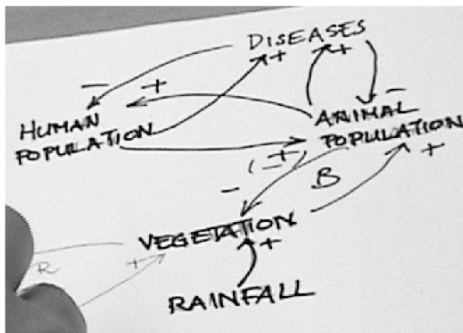 DISEASES
HUMAN
POPULATION
ANIMAL
POPULATION
- + + + -
+
(-)
- B +
VEGETATION
R + +
RAINFALL